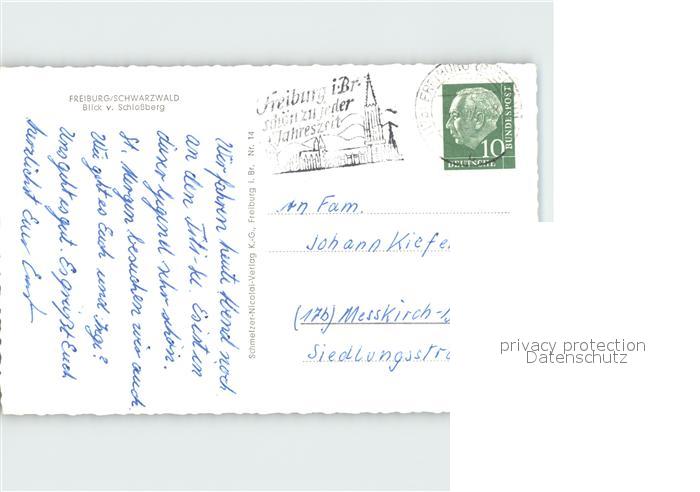 FREIBURG/SCHWARZWALD
Blick v. Schloßberg
Wir fahren heute Abend noch
an den Titi-See. Es ist in
dieser Gegend sehr schön.
St. Märgen besuchen wir auch.
Wie geht es Euch und Inge?
Uns geht es gut. Es grüßt Euch
herzlichst Euer Ernst
Schmelzer-Nicolai-Verlag K.G., Freiburg i. Br. Nr. 14
Freiburg i. Br.
schön zu jeder
Jahreszeit
FREIBURG
10
DEUTSCHE
BUNDESPOST
An Fam.
Johann Kiefe
(17b) Messkirch-
Siedlungsstra
privacy protection
Datenschutz